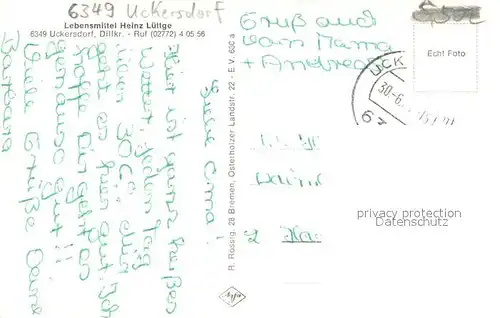 6349 Uckersdorf
Lebensmittel Heinz Lüttge
6349 Uckersdorf, Dillkr. - Ruf (02772) 4 05 56
Liebe Oma!
Hier ist ganz heißes
Wetter. Jeden Tag
über 30 C°. Mir
geht es hier gut. Ich
hoffe Dir geht es
genauso gut!!
Viele Grüße Deine
Barbara
R. Rossig, 28 Bremen, Osterholzer Landstr. 22 - E.V. 600 a
Gruß auch
von Mama
+ Andreas
Echt Foto
UCK
30.-6.
63
2
privacy protection
Datenschutz
Agfa